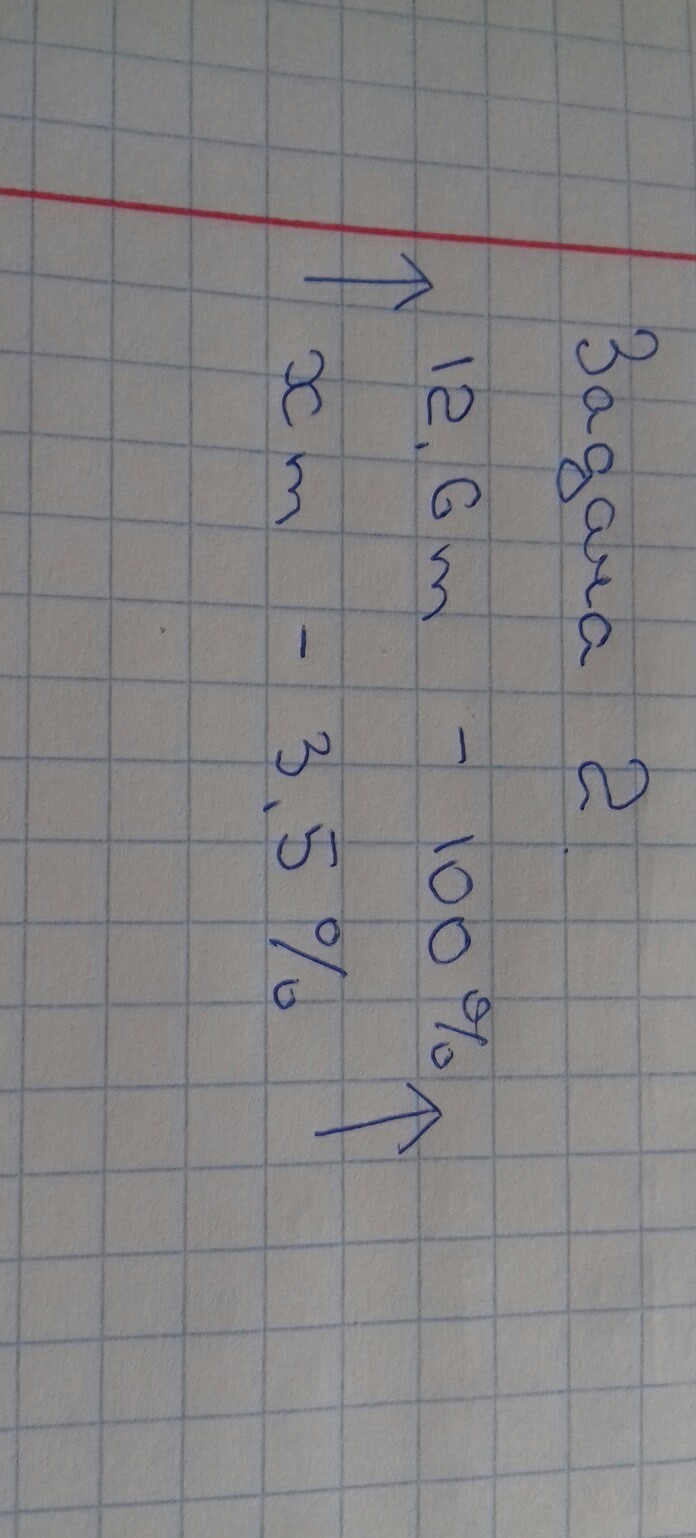 Задача 2.
↑ 12,6 т - 100% ↑
x т - 3,5%